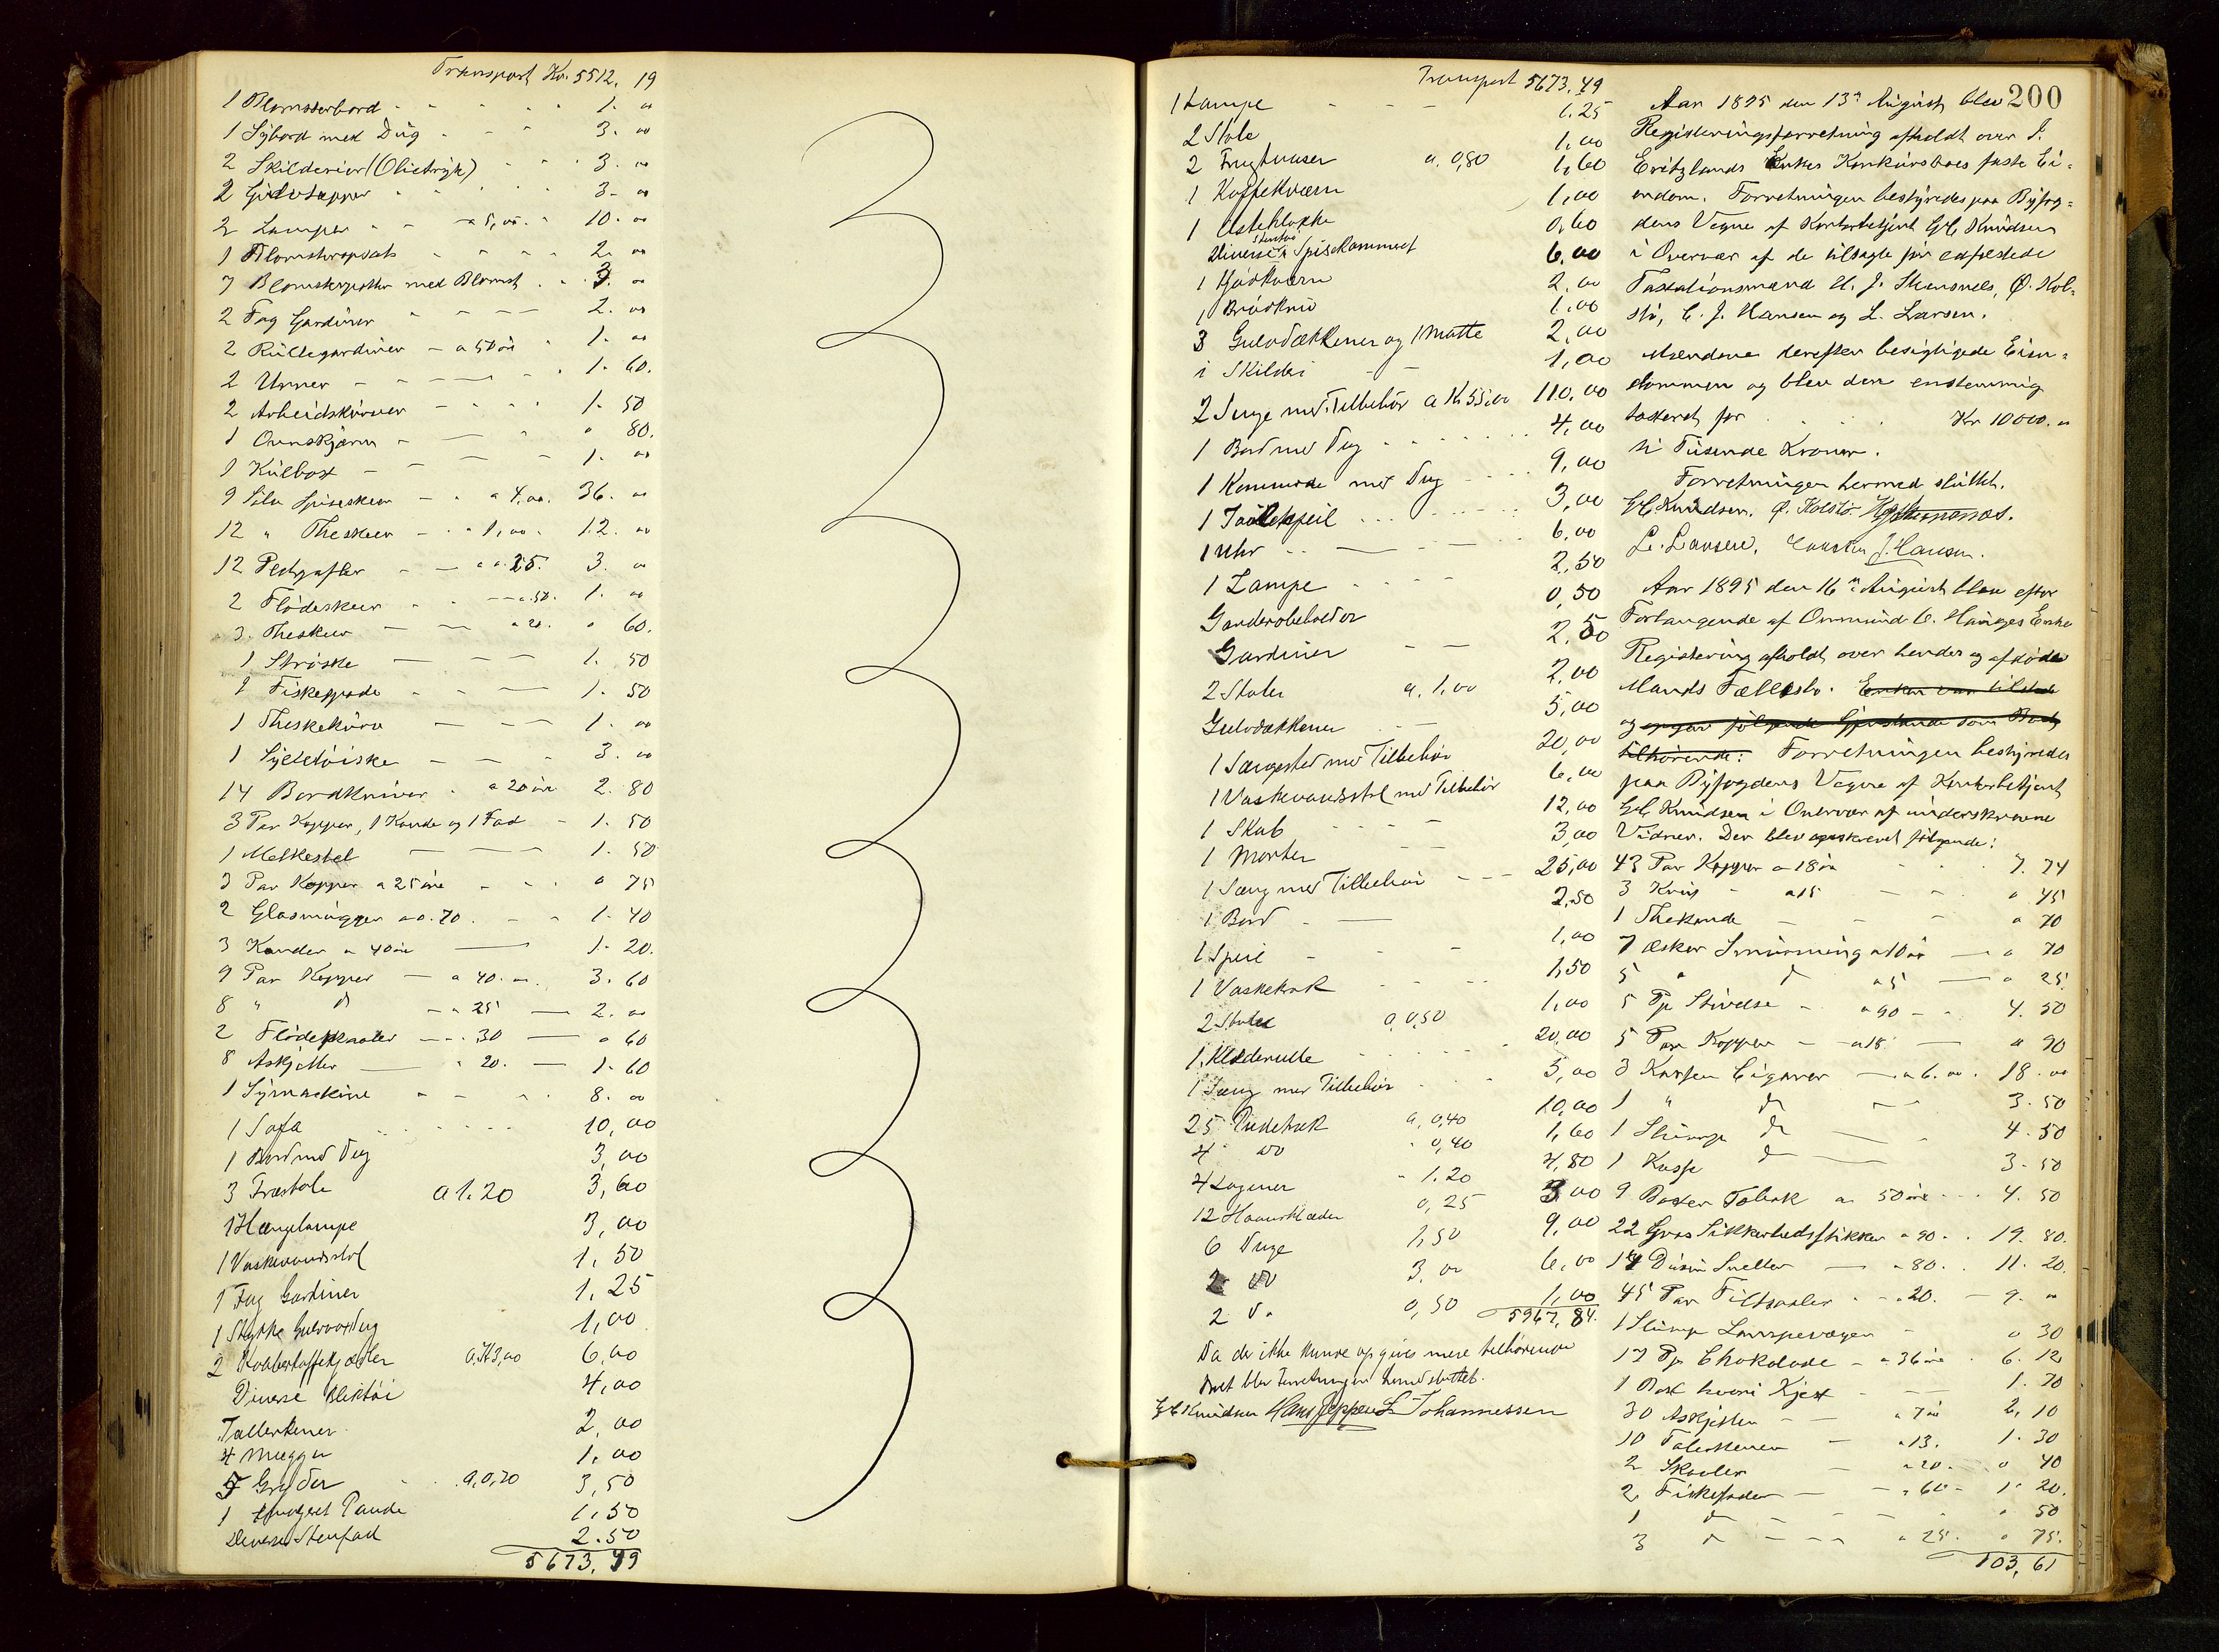 Transport Kr. 5512. 19
1 Blomsterbord - - - - - 1. "
1 Sybord med Dug - - - 3. "
2 Skilderier (Olietryk) - - - 3. "
2 Gulvtepper - - - - 3. "
2 Lamper - - a 5,00. - 10. "
1 Blomsteropsats - - - - 2. "
7 Blomsterpotter med Blomst . - 3. "
2 Fag Gardiner - - - - 2. "
2 Rullegardiner - a 50 øre - 1. "
2 Urner - - - - - 1. 60.
2 Arbeidskurver - - - - 1. 50
1 Ovnskjærm - - - " 80.
1 Kulbox - - - - 1. "
9 Sølv Spiseskeer - - a 4,00. 36. "
12 " Theskeer - - a 1,00 - 12. "
12 Pletgafler - - a " 25. 3. "
2 Flødeskeer - - - a " 50. 1. "
3. Theskeer - - a 20. " 60.
1 Strøske - - - 1. 50
1 Fiskespade - - - 1. 50
1 Theskekurv - - - 1. "
1 Syltetøiske - - - 3. "
14 Bordkniver - a 20 øre 2. 80
3 Par Kopper, 1 Kande og 1 Fad - 1. 50
1 Melkestel - - - 1. 50
3 Par Kopper a 25 øre - - - " 75
2 Glasmugger a 0.70. - - 1. 40
3 Kander a 40 øre - 1. 20.
9 Par Kopper - a 40. - 3. 60
8 " d - a 25 - 2. "
2 Flødeskaaler - - 30 - " 60
8 Askjetter - " 20. - 1. 60
1 Symaskine - - - 8. "
1 Sofa - - - - - 10,00
1 Bord med Dug 3,00
3 Træstole a 1.20 3,60
1 Hængelampe 3,00
1 Vaskevandsstol 1,50
1 Fag Gardiner 1,25
1 Stykke Gulvvoxdug 1,00
2 Kobberkaffekjædler a K 3,00 6,00
Diverse Bliktøi 4,00
Tallerkener 2,00
4 Mugger 1,00
5 Gryder - . a 0,70 3,50
1 Pande 1,50
Diverse Stenfad 2.50
5673,49
Transport 5673,49
1 Lampe - - - 1.25
2 Stole 1,00
2 Frugtvaser a 0,80 1,60
1 Kaffekværn 1,00
1 Osteklokke 0,60
Diverse Stentøi i Spisekammeret 6,00
1 Kjødkværn 2,00
1 Brødkniv 1,00
3 Gulvdækkener og 1 Matte 2,00
1 Skilderi - - 1,00
2 Senge med Tilbehør a Kr 55,00 110,00
1 Bord med Dug - - - - - 4,00
1 Kommode med Dug - - 9,00
1 Toiletspeil - - - - 3,00
1 Uhr - - - - 6,00
1 Lampe - - - - 2,50
Garderobeholder 0,50
Gardiner - - 2,50
2 Stoler a. 1,00 2,00
Gulvdækkener - - 5,00
1 Sengested med Tilbehør 20,00
1 Vaskevandsstol med Tilbehør 6,00
1 Skab - - - - 12,00
1 Morter - - 3,00
1 Seng med Tilbehør - - - 25,00
1 Bord - - 2,50
1 Speil - - - 1,00
1 Vaskekrak - - - - 1,50
2 Stoler a 0,50 1,00
1 Klederulle - - - - - 20,00
1 Seng med Tilbehør - - - 5,00
25 Pudetræk a 0,40 10,00
4 do " 0,40 1,60
4 Lagener " 1.20 4,80
12 Haandklæder 0,25 3,00
6 Duge 1,50 9,00
2 do 3,00 6,00
2 do 0,50 1,00
5967,84.
Da der ikke kunde opgives mere tilhørende
Boet blev Forretningen hermed sluttet.
G C Knudsen Hans Jeppesen L Johannessen
200
Aar 1895 den 13de August blev
Registreringsforretning afholdt over J.
Eritzlands Enkes Konkursboes faste Ei=
endom. Forretningen bestyredes paa Byfog=
dens Vegne af Kontorbetjent G. C. Knudsen
i Overvær af de tilsagte før edfæstede
Taxtationsmænd H. J. Stensnes, Ø. Kol=
stø, C. J. Hansen og L. Larsen.
Mændene derefter besigtigede Eien=
dommen og blev den enstemmig
taxeret for . . . . Kr 10000. "
ti Tusende Kroner.
Forretningen hermed sluttet.
G C Knudsen. Ø. Kolstø. H J Stensnes.
L. Larsen. Carsten J. Hansen.
Aar 1895 den 16de August blev efter
Forlangende af Ommund C. Hauges Enke
Registrering afholdt over hendes og afdøde
Mands Fællesbo. Enken var tilstede
og opgav følgende Gjenstande som Boet
tilhørende: Forretningen bestyredes
paa Byfogdens Vegne af Kontorbetjent
G C Knudsen i Overvær af underskrevne
Vidner. Der blev opskrevet følgende:
43 Par Kopper a 18 øre - - 7. 74
3 Krus - a 15 - - " 45
1 Thekande - - - " 70
7 Æsker Smurning a 10 øre - " 70
5 " d a 5 - " 25
5 Pk Stivelse - a 90 - - 4. 50
5 Par Kopper - a 18 - " 90
3 Kasser Cigarer - a 6. " . 18. "
1 " d - - 3. 50
1 Slump d - - 4. 50
1 Kasse d - 3. 50
9 Boxer Tobak a 50 øre - - 4. 50
22 Gros Sikkerhedsstikker a 90 - . 19. 80.
14 Dusin Sneller - a 80. . 11. 20.
45 Par Filtsaaler - - a 20. - 9. "
1 Slump Lampevæger - " 30
17 Pk Chokolade - a 36 øre . 6. 12
1 Box Kjex - - - 1. 70
30 Askjetter - - a 7 øre 2, 10
10 Talerkener - a 13. 1. 30
2 Skaaler - a 20. - " 40
2 Fiskefade - - a 60 - 1. 20.
1 d - - - - " 50
3 d - - - a 25. " 75.
103, 61